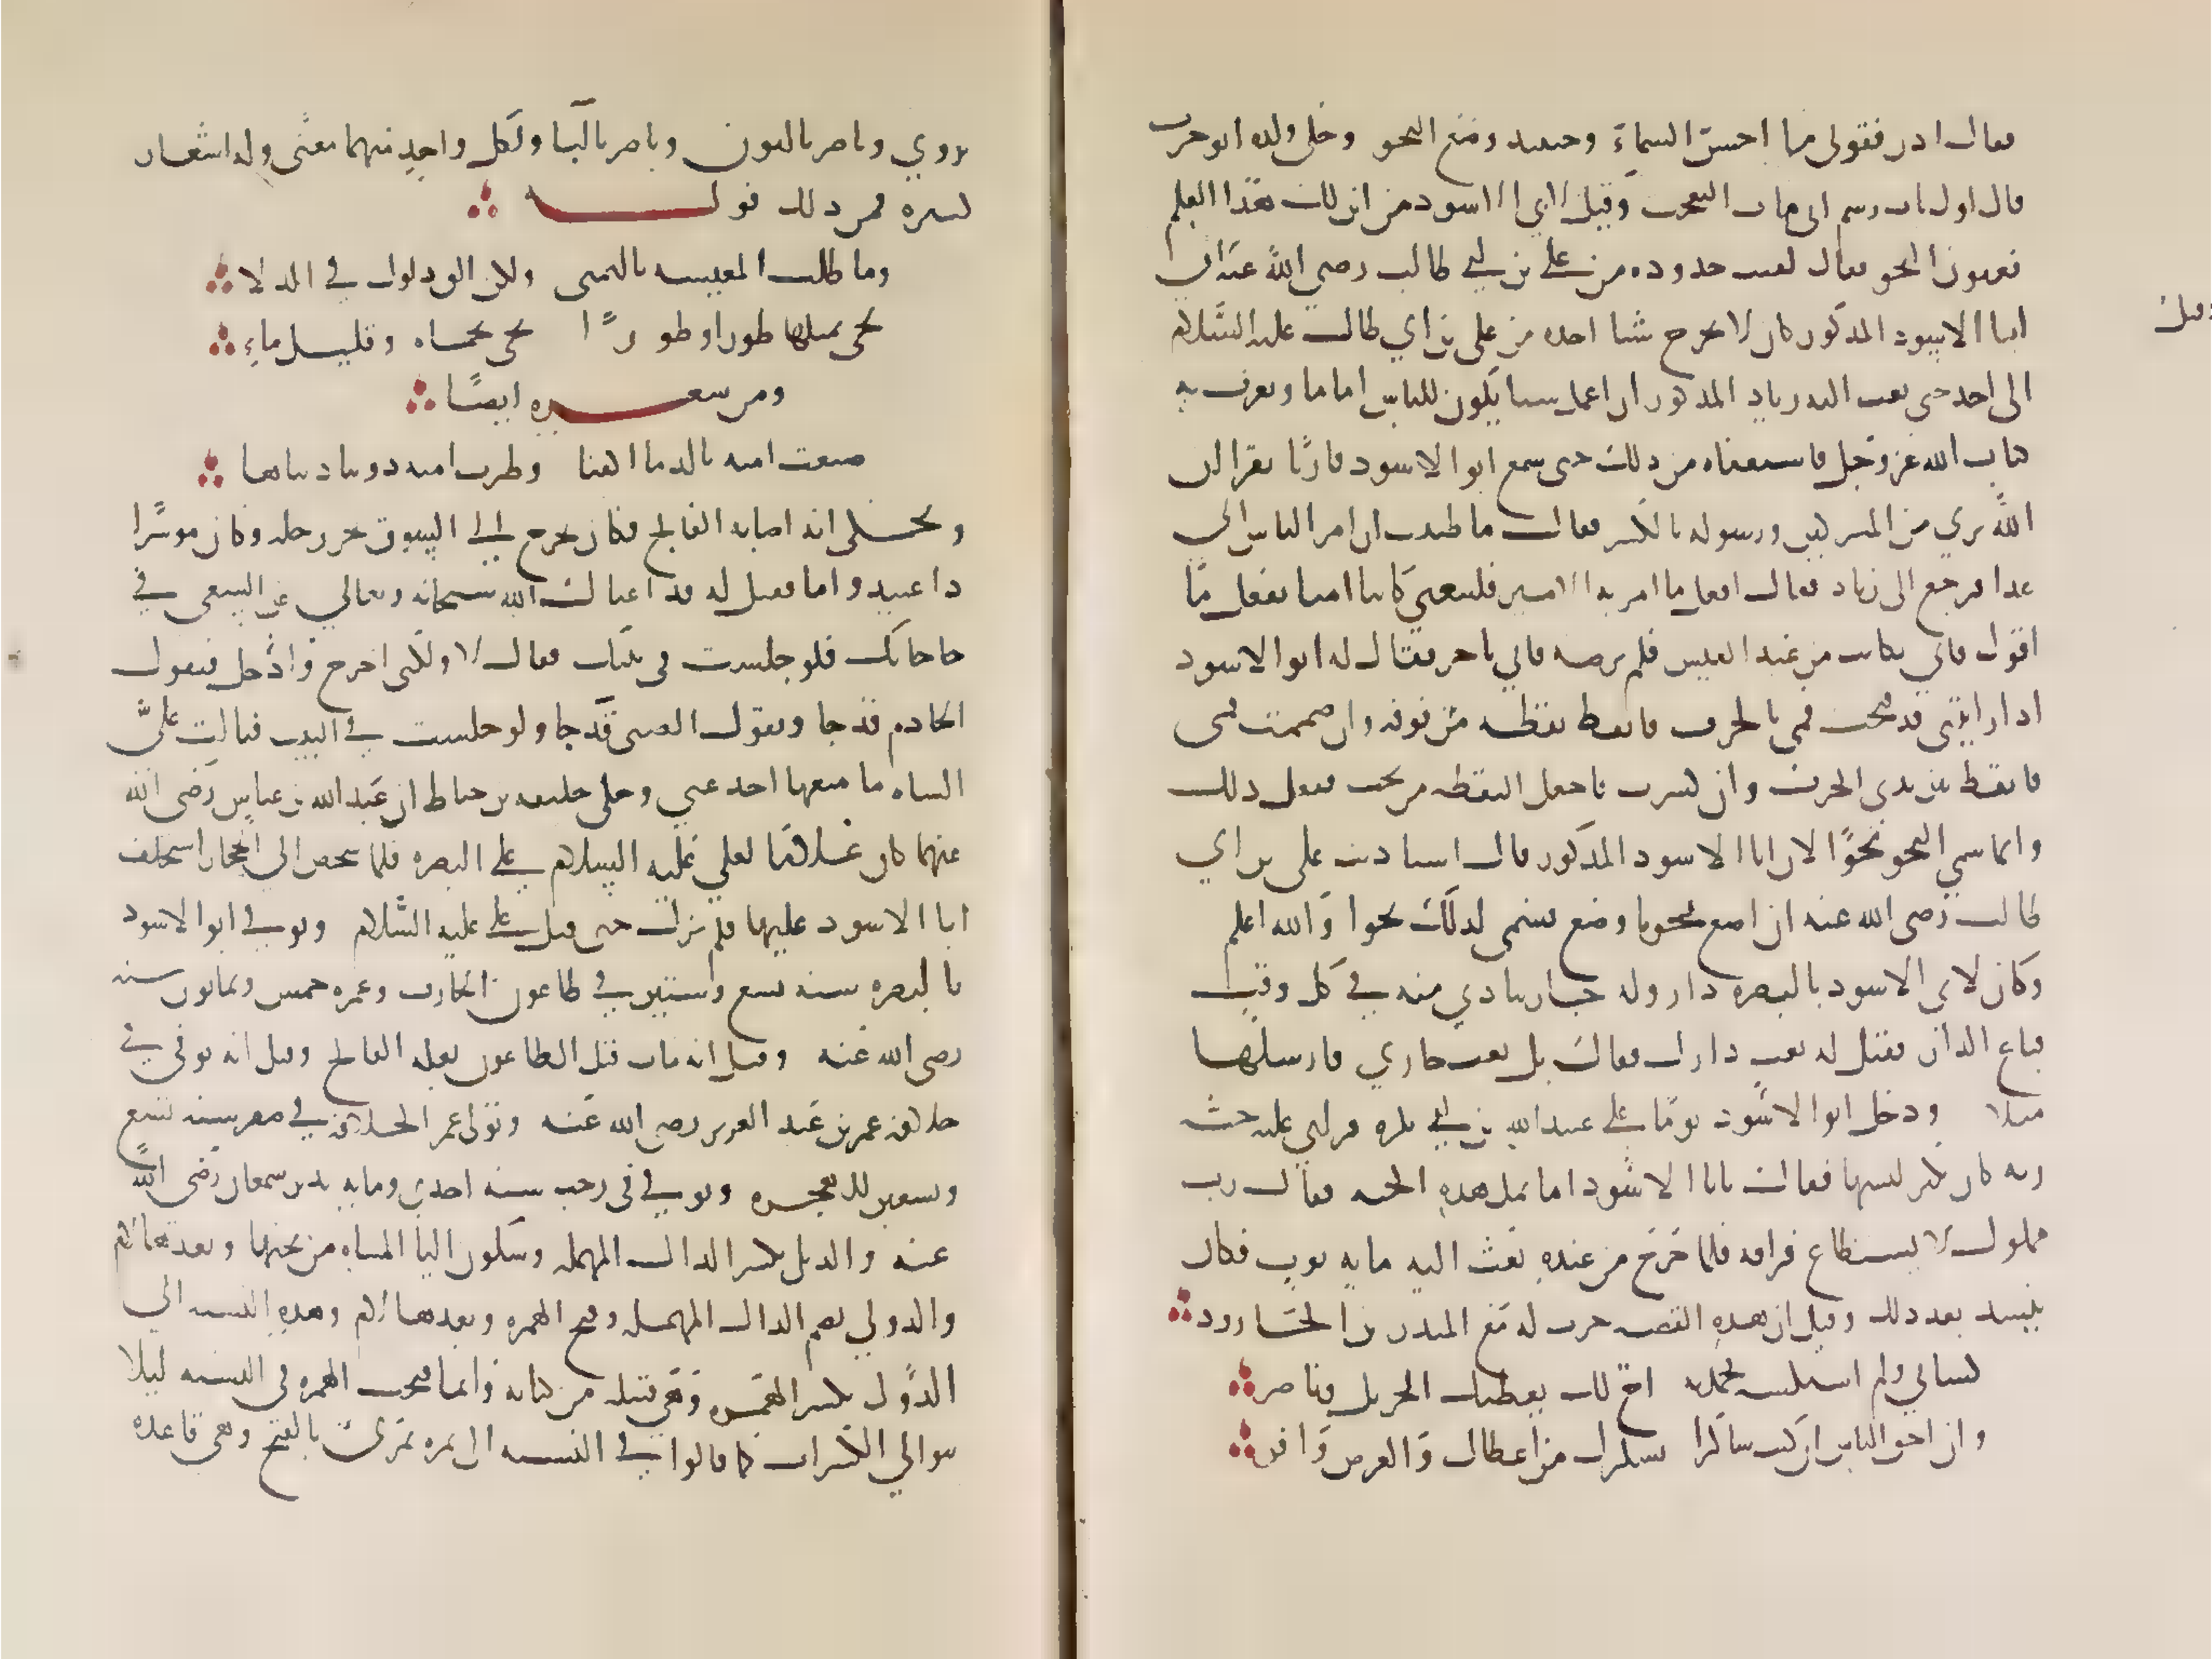 فقال اذن فقولي ما احسن السماء وحينئذ وضع النحو وحكى ولده ابو حرب
قال اول باب رسم ابي باب التعجب وقيل لابي الاسود من اين لك هذا العلم
يعنون النحو فقال لقنت حدوده من علي بن ابي طالب رضي الله عنه ان
وقيل
ابا الاسود المذكور كان لا يخرج شيئا اخذه من علي بن ابي طالب عليه السلام
الى احد حتى بعث اليه زياد المذكور ان اعمل شيئا يكون للناس اماما ويعرف به
كتاب الله عز وجل فاستعفاه من ذلك حتى سمع ابو الاسود قارئا يقرا ان
الله بري من المشركين ورسوله بالكسر فقال ما ظننت ان امر الناس الى
هذا فرجع الى زياد فقال افعل ما امر به الامير فليبغني كاتبا لقنا يفعل ما
اقول فاتي بكاتب من عبد القيس فلم يرضه فاتي باخر فقال له ابو الاسود
اذا رايتني قد فتحت فمي بالحرف فانقط نقطه من فوقه وان ضممت فمي
فانقط بين يدي الحرف وان كسرت فاجعل النقطه من تحت ففعل ذلك
وانما سمي النحو نحوا لان ابا الاسود المذكور قال استاذنت علي بن ابي
طالب رضي الله عنه ان اضع نحو ما وضع فسمي لذلك نحوا والله اعلم
وكان لابي الاسود بالبصره دار وله جار يتاذي منه في كل وقت
فباع الدار فقيل له بعت دارك فقال بل بعت جاري فارسلها
مثلا ودخل ابو الاسود يوما علي عبيد الله بن ابي بكره فراي عليه جبة
رثه كان يكثر لبسها فقال يا ابا الاسود اما تمل هذه الجبه فقال رب
مملوك لا يستطاع فراقه فلما خرج من عنده بعث اليه مايه ثوب فكان
ينشد بعد ذلك وقيل ان هذه القصه جرت له مع المنذر بن الجارود
كساني ولم استكسه فحمدته اخ لك يعطيك الجزيل وناصر
وان احق الناس ان كنت شاكرا بشكرك من اعطاك والعرض وافر
يروي وناصر بالنون وياصر باليا ولكل واحد منهما معنى وله اشعار
كثيره فمن ذلك قوله
وما طلب المعيشه بالتمني ولكن الق دلوك في الدلا
تجي بملئها طورا وطورا تجي بحماه وقليل ماء
ومن شعره ايضا
صبغت اميه بالدما اكفنا وطوت اميه دوننا دنياها
ويحكى انه اصابه الفالج فكان يخرج الى السوق يجر رجله وكان موسرا
ذا عبيد واما فقيل له قد اغناك الله سبحانه وتعالى عن السعي في
حاجاتك فلو جلست في بيتك فقال لا ولكني اخرج وادخل فيقول
الخادم قد جا ويقول الصبي قد جا ولو جلست في البيت فبالت علي
الشاه ما منعها احد عني وحكى خليفه بن خياط ان عبد الله بن عباس رضي الله
عنهما كان عاملا لعلي عليه السلام على البصره فلما شخص الى الحجاز استخلف
ابا الاسود عليها فلم يزل حتى قتل علي عليه السلام وتوفي ابو الاسود
بالبصره سنه تسع وستين في طاعون الجارف وعمره خمس وثمانون سنه
رضي الله عنه وقيل انه مات قبل الطاعون بعله الفالج وقيل انه توفي في
خلافه عمر بن عبد العزيز رضي الله عنه وتولى عمر الخلافه في صفر سنه تسع
وتسعين للهجره وتوفي في رجب سنه احدى ومايه بدير سمعان رضي الله
عنه والديل بكسر الدال المهمله وسكون اليا المثناه من تحتها وبعدها لام
والدولي بضم الدال المهمله وفتح الهمزه وبعدها لام وهذه النسبه الى
الدول بكسر الهمزه وهي قبيله من كنانه وانما فتحت الهمزه في النسبه ليلا
تتوالي الكسرات كما قالوا في النسبه الى نمره نمري بالفتح وهي قاعده